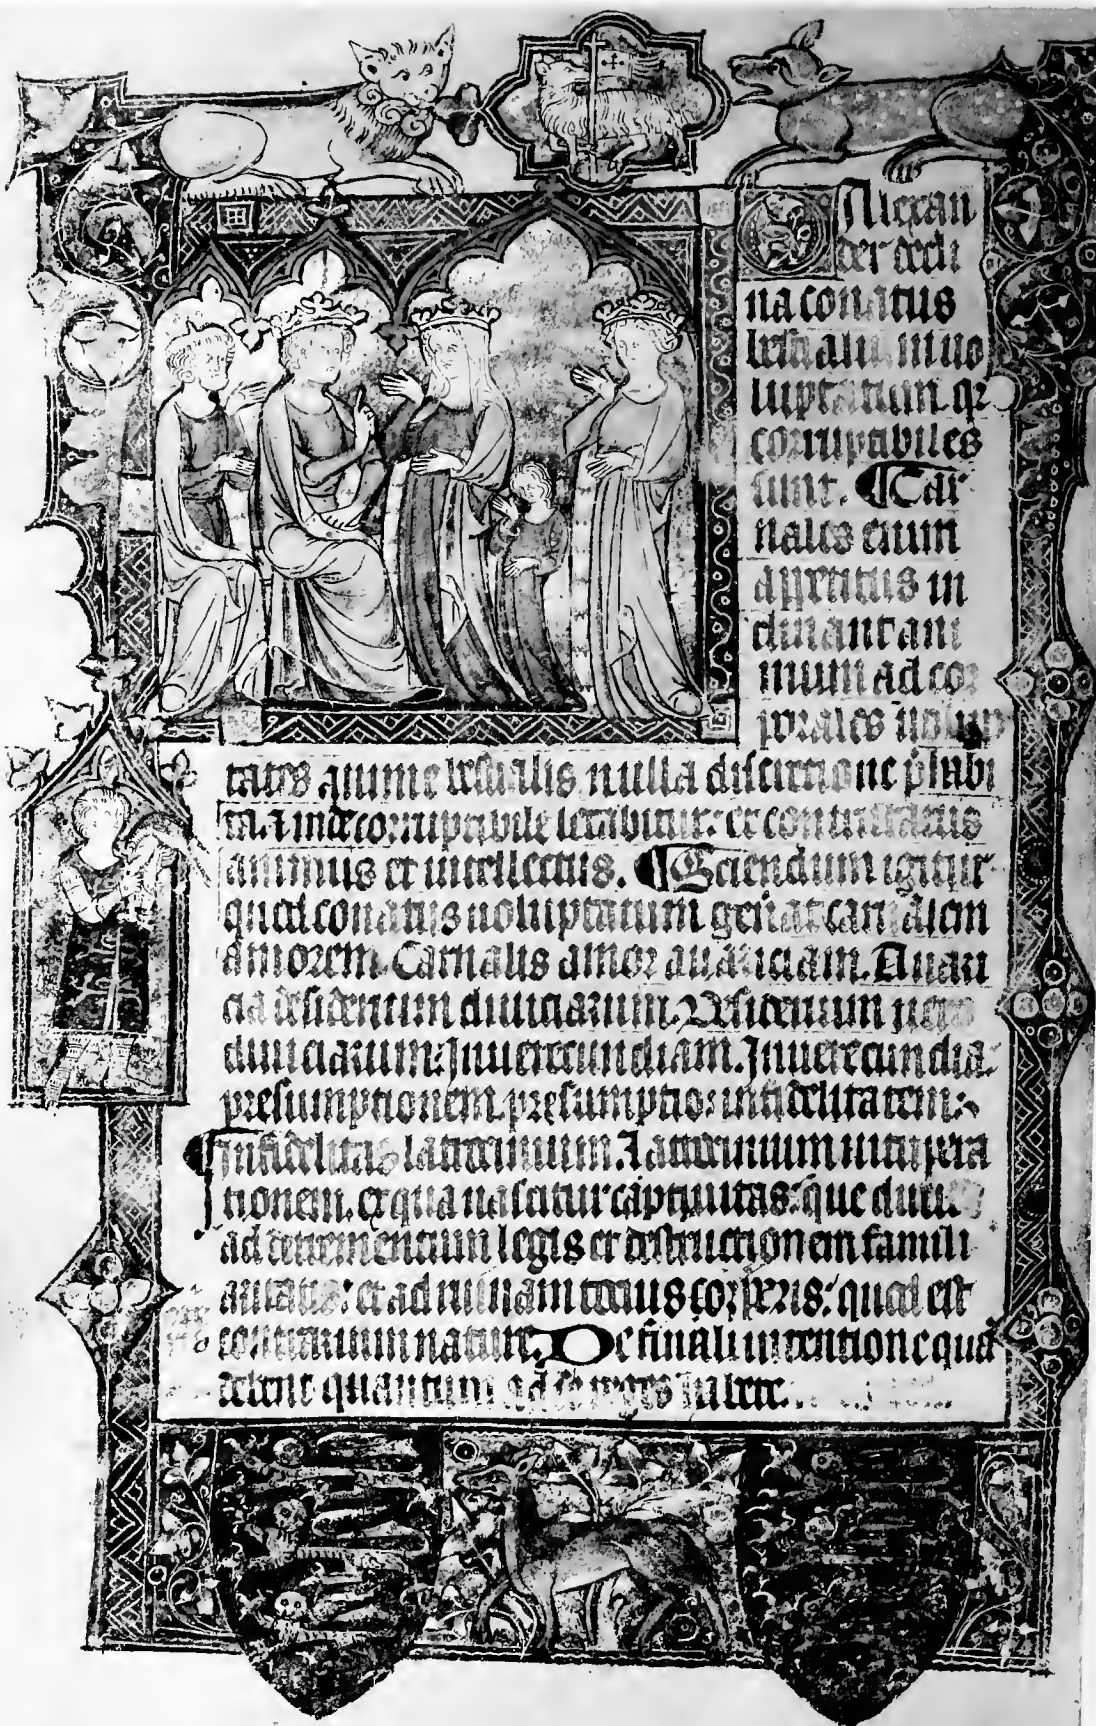 O Alexan
der decli
na conatus
bestialium uo
luptatum. qr
corruptibiles
sunt. ¶ Car
nales enim
appetitus in
clinant ani
mum ad cor
porales uolup
tates anime bestialis nulla discretione phabi
ta. 7 inde corruptibile letabitur: et contristatus
animus et intellectus. ¶ Sciendum igitur
quod conatus uoluptatum gen̄at carnalem
amorem. Carnalis amor auariciam. Auari
cia desiderium diuiciarum. Desiderium uero
diuiciarum: Inuerecundiam. Inuerecundia:
presumptionem. presumptio: infidelitatem:
¶ Infidelitas latrocinium. Latrocinium uitupera
tionem. ex qua nascitur captiuitas: que ducit
ad detrementum legis et destructionem famili
aritatis: et ad ruinam totius corporis: quod est
contrarium nature. De finali intentione quā
debent quantum ad se reges habere.